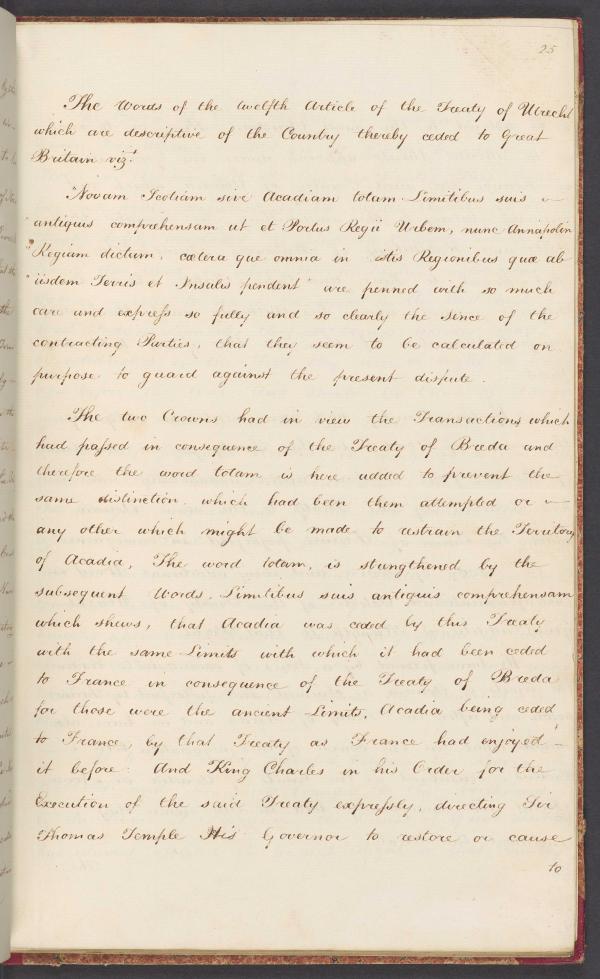 25
The Words of the twelfth Article of the Treaty of Utrecht
which are descriptive of the Country thereby ceded to Great
Britain vizt.
"Novam Scotiam sive Acadiam totam Limitibus suis
"antiquis comprehensam ut et Portus Regii Urbem, nunc Annapolin
"Regiam dictum, cætera que omnia in istis Regionibus quæ ab
"iisdem Terris et Insulis pendent" are penned with so much
care and express so fully and so clearly the sence of the
contracting Parties, that they seem to be calculated on
purpose to guard against the present dispute.
The two Crowns had in view the Transactions which
had passed in consequence of the Treaty of Breda and
therefore the word totam is here added to prevent the
same distinction which had been them attempted or
any other which might be made to restrain the Territory
of Acadia, The word totam, is stungthened by the
subsequent Words, Limitibus suis antiquis comprehensam
which shews, that Acadia was ceded by this Treaty
with the same Limits with which it had been ceded
to France in consequence of the Treaty of Breda
for those were the ancient Limits, Acadia being ceded
to France, by that Treaty as France had enjoyed
it before. And King Charles in his Order for the
Execution of the said Treaty expressly, directing Sir
Thomas Temple His Governor to restore or cause
to